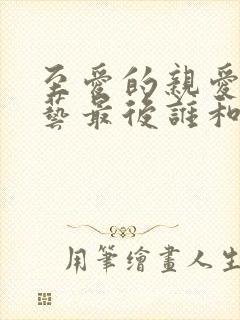 至愛的親愛
藝最後誰和
用筆繪畫人生